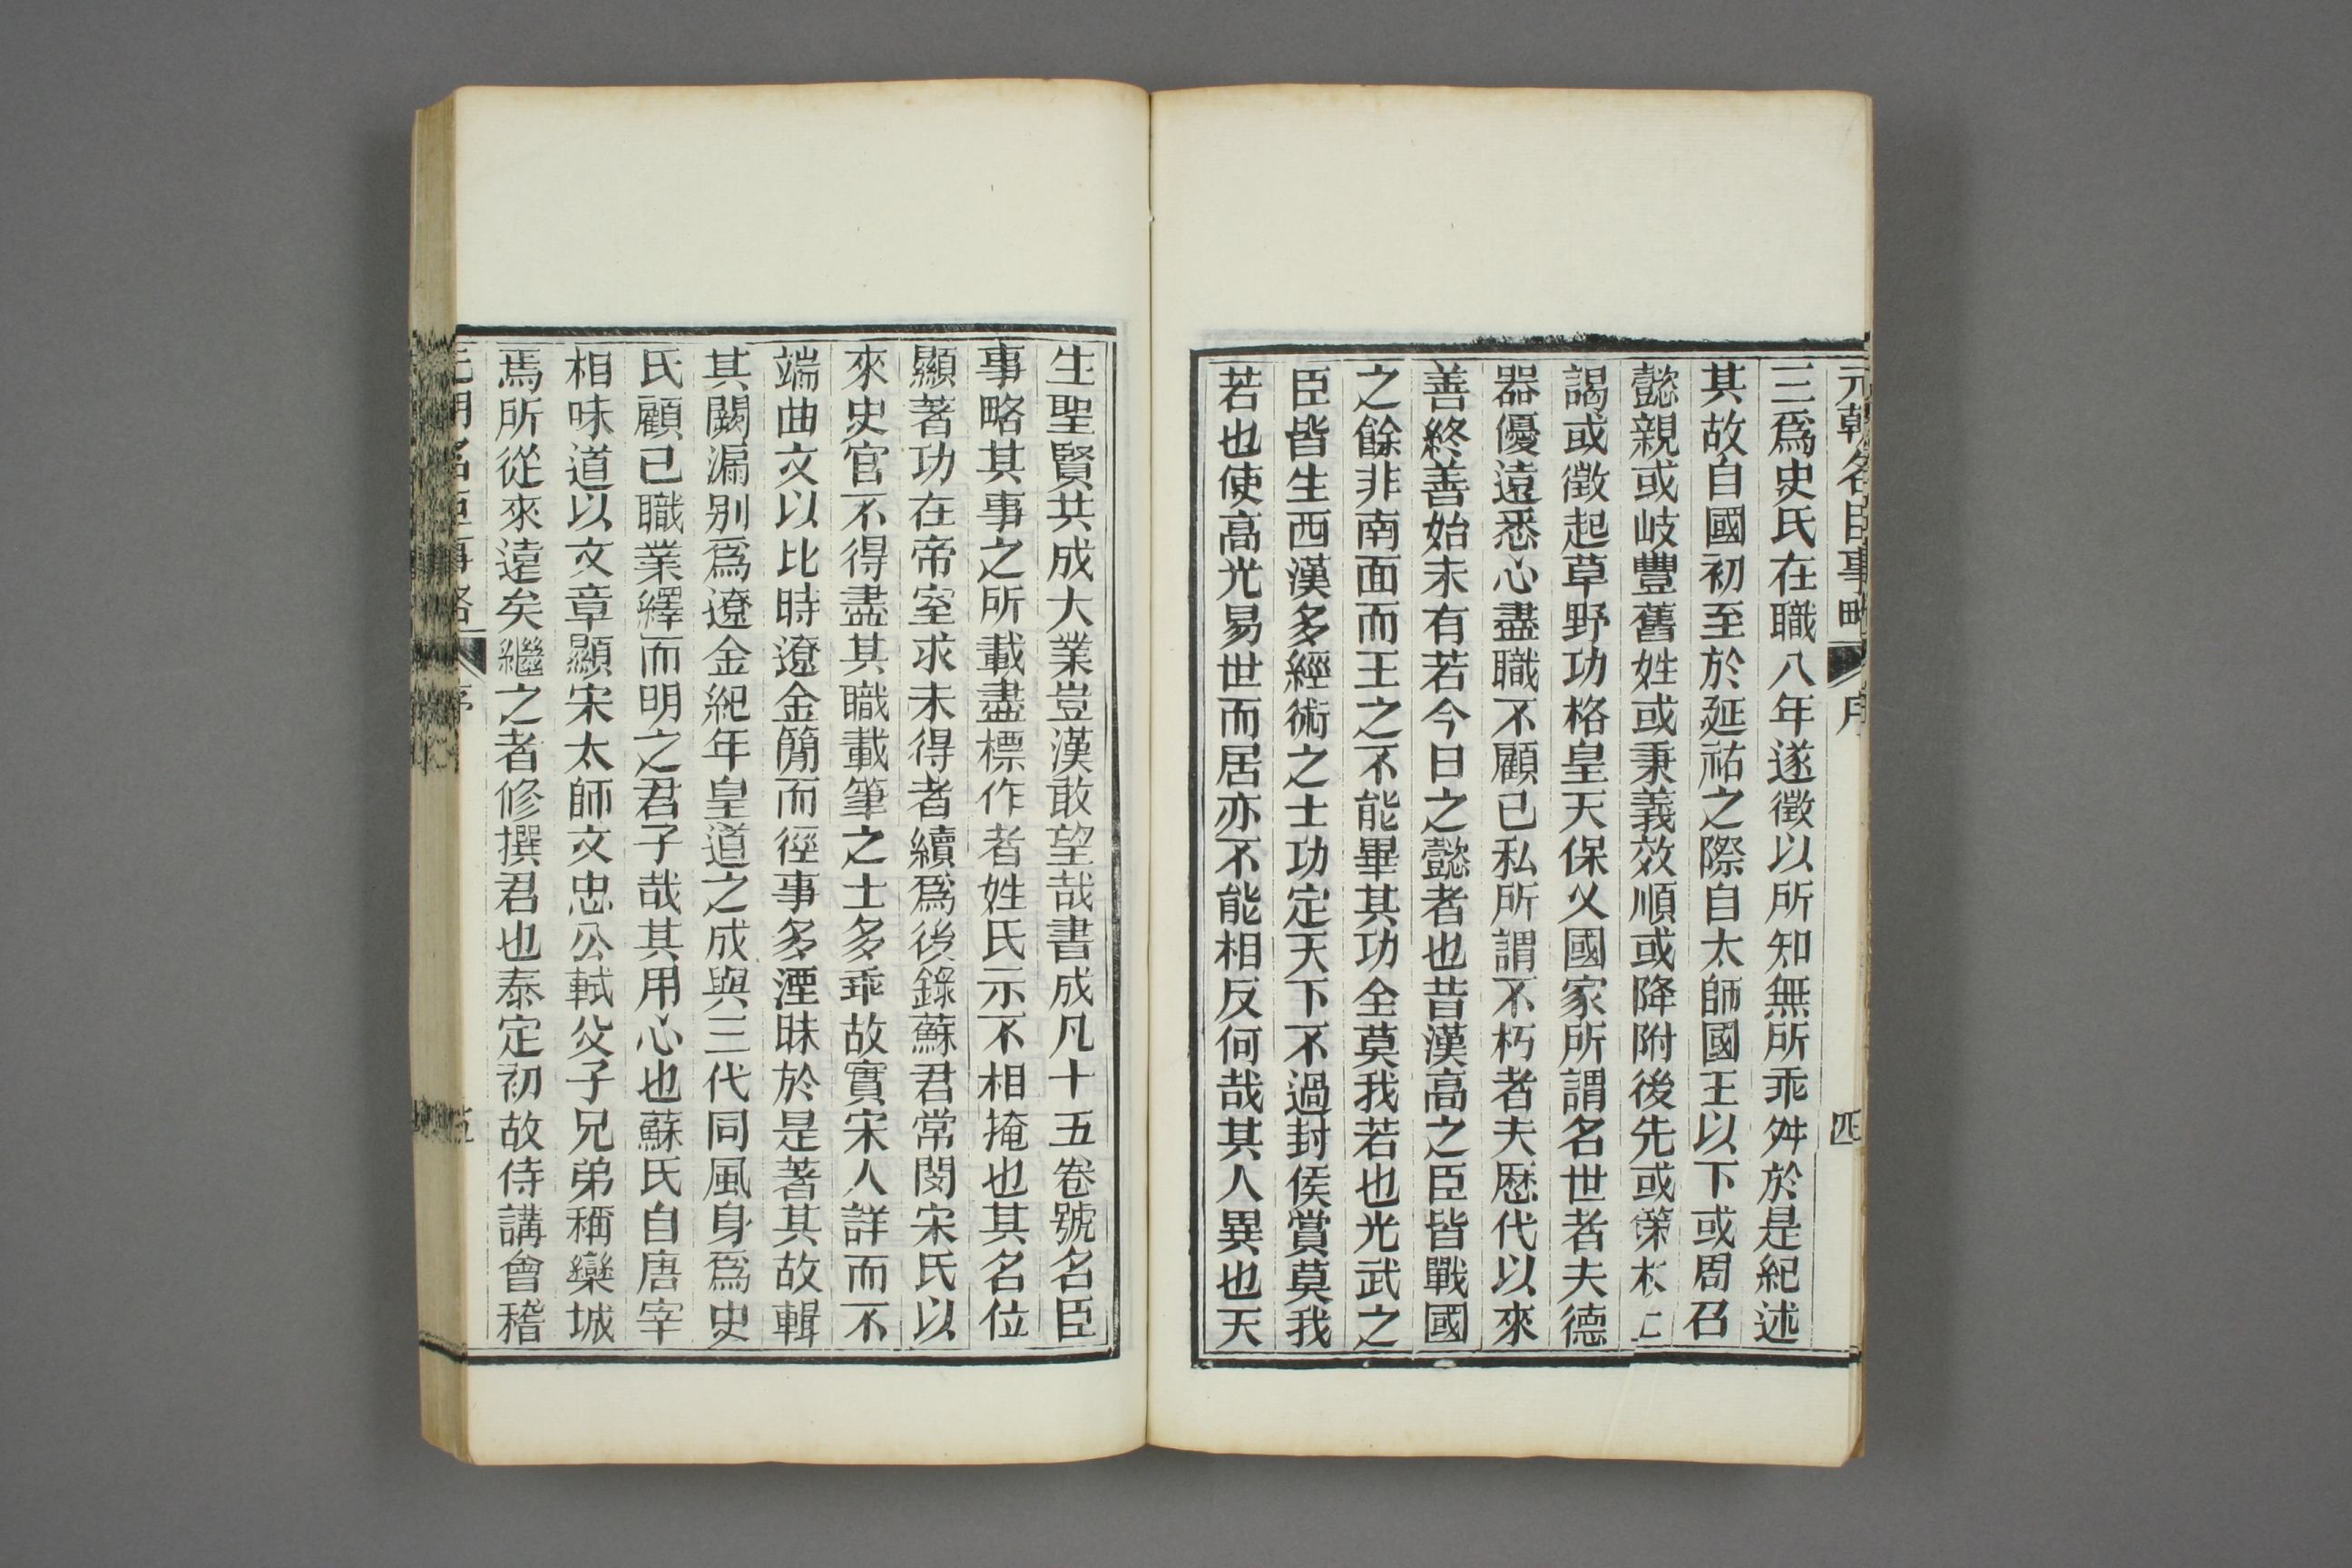 元朝名臣事略 序 四
三爲史氏在職八年遂徵以所知無所乖舛於是紀述
其故自國初至於延祐之際自太師國王以下或周召
懿親或岐豐舊姓或秉義效順或降附後先或策杖上
謁或徵起草野功格皇天保乂國家所謂名世者夫德
器優遠悉心盡職不顧已私所謂不朽者夫歷代以來
善終善始未有若今日之懿者也昔漢高之臣皆戰國
之餘非南面而王之不能畢其功全莫我若也光武之
臣皆生西漢多經術之士功定天下不過封侯賞莫我
若也使高光易世而居亦不能相反何哉其人異也天
生聖賢共成大業豈漢敢望哉書成凡十五卷號名臣
事略其事之所載盡標作者姓氏示不相掩也其名位
顯著功在帝室求未得者續爲後錄蘇君常閔宋氏以
來史官不得盡其職載筆之士多乖故實宋人詳而不
端曲文以比時遼金簡而徑事多湮昧於是著其故輯
其闕漏别爲遼金紀年皇道之成與三代同風身爲史
氏顧已職業繹而明之君子哉其用心也蘇氏自唐宰
相味道以文章顯宋太師文忠公軾父子兄弟稱欒城
焉所從來遠矣繼之者修撰君也泰定初故侍講會稽
元朝名臣事略 序 五